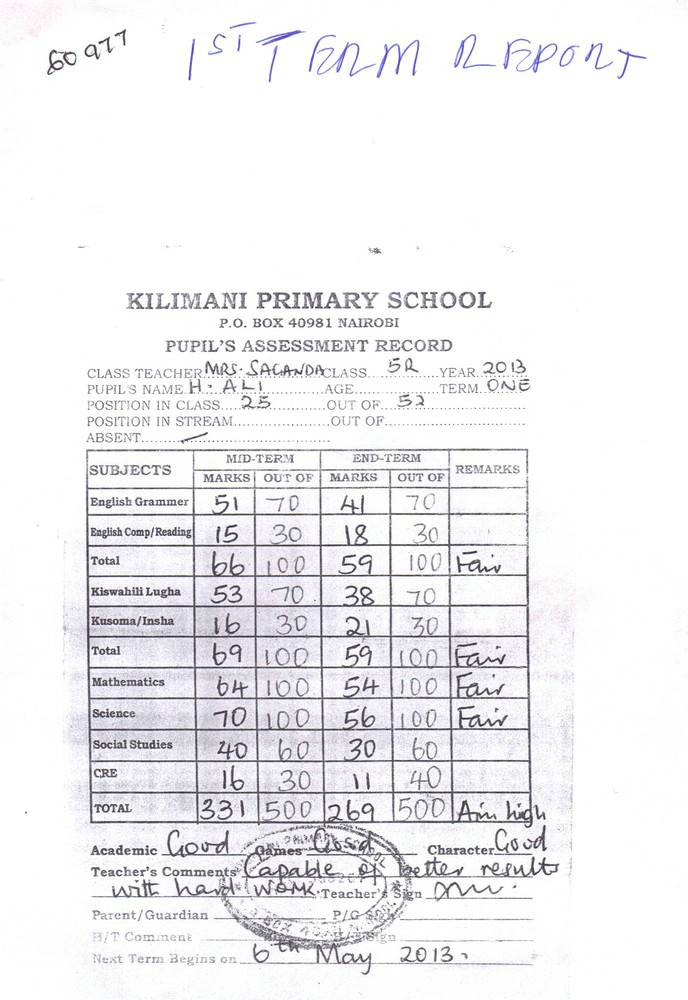 60977
1ST TERM REPORT
KILIMANI PRIMARY SCHOOL
P.O. BOX 40981 NAIROBI
PUPIL'S ASSESSMENT RECORD
CLASS TEACHER MRS. SAGANDA CLASS 5R YEAR 2013
PUPIL'S NAME H. ALI AGE TERM ONE
POSITION IN CLASS 25 OUT OF 52
POSITION IN STREAM OUT OF
ABSENT
SUBJECTS MID-TERM END-TERM REMARKS
MARKS OUT OF MARKS OUT OF
English Grammer 51 70 41 70
English Comp/Reading 15 30 18 30
Total 66 100 59 100 Fair
Kiswahili Lugha 53 70 38 70
Kusoma/Insha 16 30 21 30
Total 69 100 59 100 Fair
Mathematics 64 100 54 100 Fair
Science 70 100 56 100 Fair
Social Studies 40 60 30 60
CRE 16 30 11 40
TOTAL 331 500 269 500 Aim high
Academic Good Games Good Character Good
Teacher's Comments Capable of better results
with hard work. Teacher's Sign
Parent/Guardian
H/T Comment Sign
Next Term Begins on 6th May 2013.